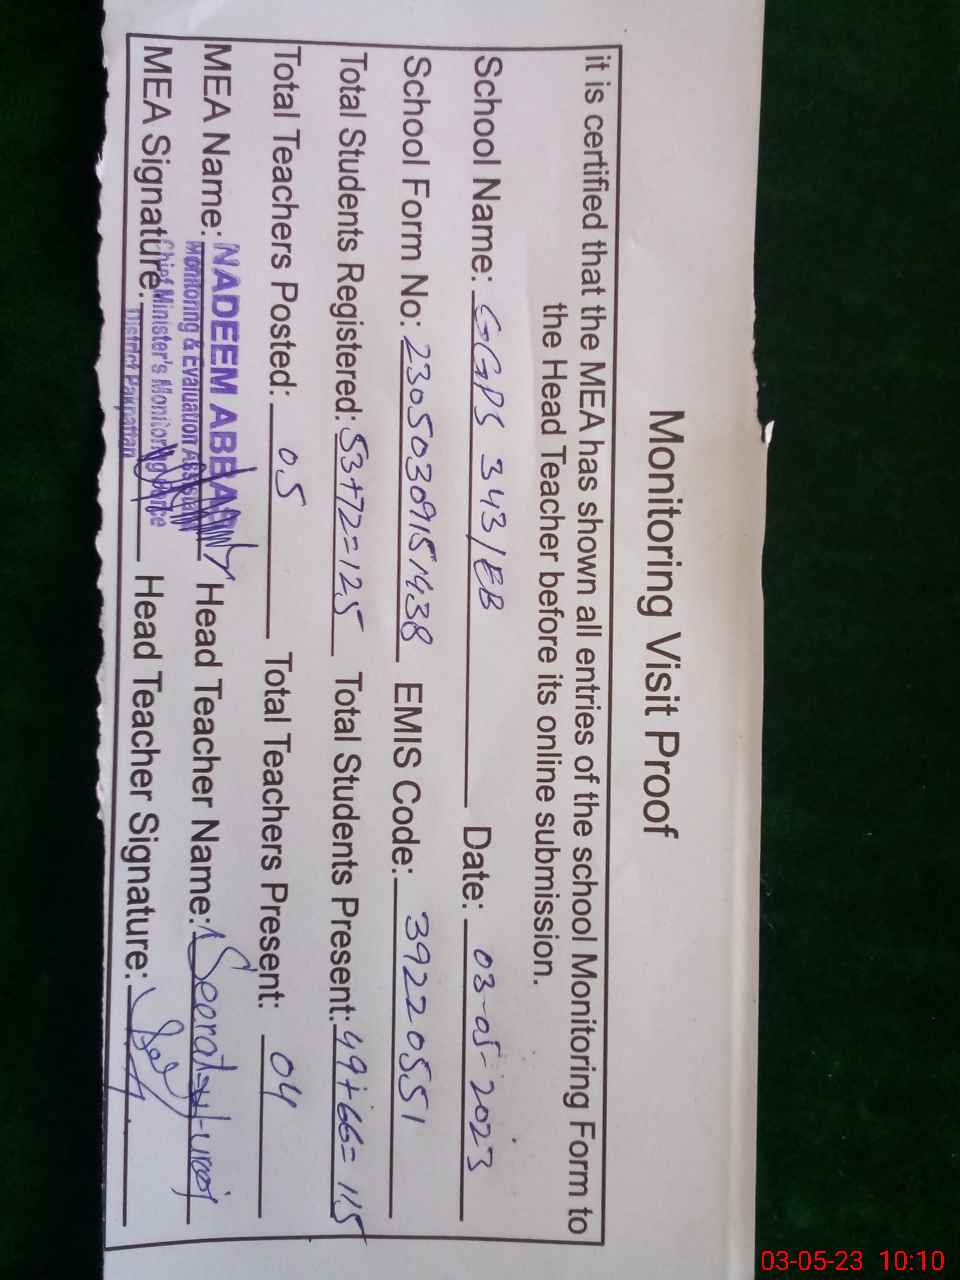 Monitoring Visit Proof
it is certified that the MEA has shown all entries of the school Monitoring Form to
the Head Teacher before its online submission.
School Name: GGPS 343/EB Date: 03-05-2023
School Form No: 23050309151438 EMIS Code: 39220551
Total Students Registered: 53+72=125 Total Students Present: 49+66=115
Total Teachers Posted: 05 Total Teachers Present: 04
MEA Name: NADEEM ABBAS Head Teacher Name: Seerat-ul-
Monitoring & Evaluation Assistant
MEA Signature: Head Teacher Signature:
Chief Minister's Monitoring Force
District Pakpattan
03-05-23 10:10